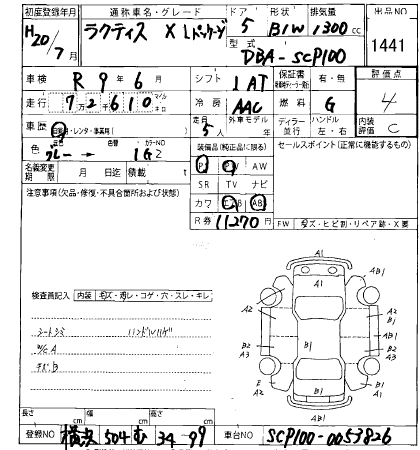 初度登録年月 通称車名・グレード ドア 形状 排気量 出品NO
H20/7月 ラクティス X Lパッケージ 5 B/W 1300cc 1441
型式 DBA-SCP100
車検 R9年6月 シフト 1AT 保証書 有・無 評価点
走行 72610 冷房 AAC 燃料 G 4
車歴 自家用・レンタ・事業用 定員 5人 外車モデル 年 ディーラー 並行 ハンドル 左・右 内装評価 C
色 元色 グレー→ 色替 カラーNO 1G2
装備品(純正品に限る) セールスポイント(正常に機能するもの)
名義変更期限 月 日迄 積載 t
PS PW AW
SR TV ナビ
カワ エアB AB
R券 11270円
FW キズ・ヒビ割・リペア跡・X要
注意事項(欠品・修復・不具合箇所および状態)
検査員記入 内装 キズ・汚レ・コゲ・穴・スレ・キレ
シートシミ ハンドルハゲ
A1
A1
AB1
A2
A2
A1
B1
B2
A3
AB1
B2
A3
B1
E
A2
B1
A2
A1
AB1
長さ cm 幅 cm 高さ cm
登録NO 横浜 504 む 34-99 車台NO SCP100-0053826